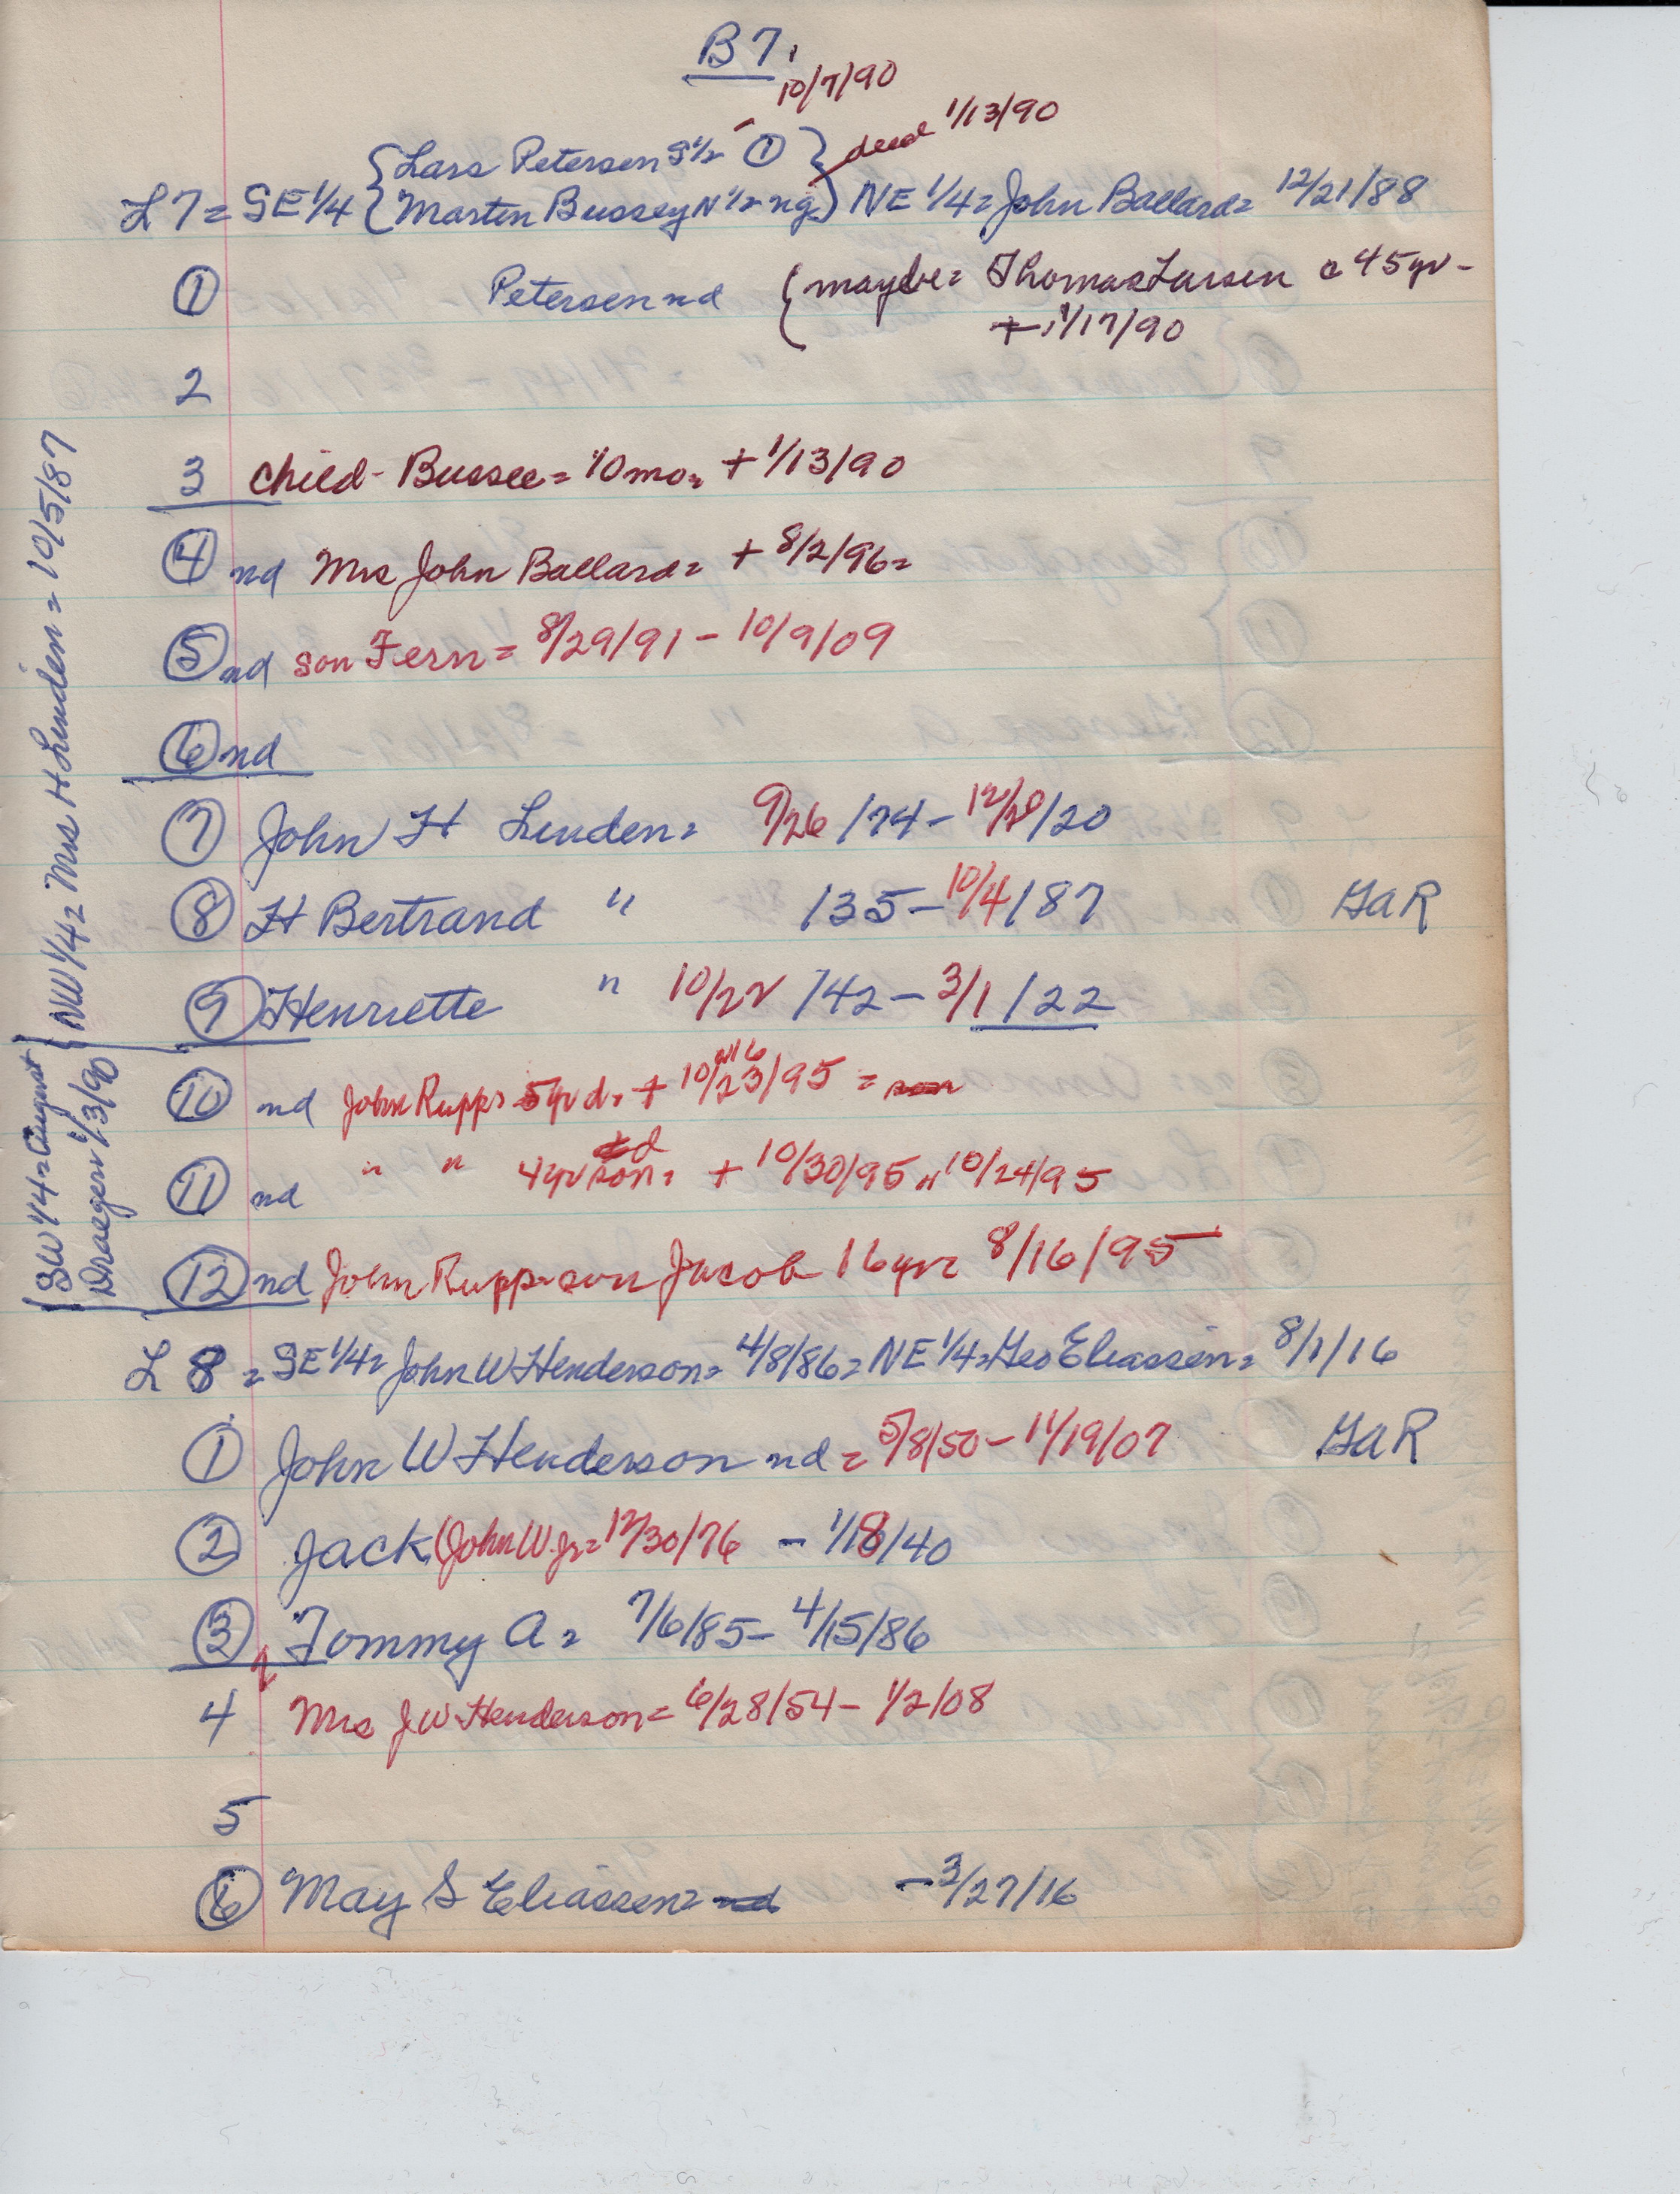 B 7
10/7/90
{Lars Petersen S 1/2 ① } deed 1/13/90
L 7 = SE 1/4 {Marten Bussey N 1/2 ng.) NE 1/4 = John Ballard = 12/21/88
① Petersen nd (maybe = Thomas Larsen c 45 yr -
+ 1/17/90
2
3 child - Bussee = 10 mo = + 1/13/90
④ nd Mrs John Ballard = + 8/2/96 =
⑤ nd son Fern = 8/29/91 - 10/9/09
⑥ nd
⑦ John H Linden = 9/26 /74 - 12/28/20
⑧ H Bertrand " /35 - 10/4/87 GaR
⑨ Henriette " 10/22 /42 - 3/1/22
⑩ nd John Rupp = 5 yr d. + 10/23/95 = son
⑪ nd " " 4 yr son = d + 10/30/95 " 10/24/95
⑫ nd John Rupp = son Jacob 16 yr = 8/16/95
L 8 = SE 1/4 = John W Henderson = 4/8/86 = NE 1/4 = Geo Eliassen = 8/1/16
① John W Henderson nd = 5/8/50 - 11/19/07 GaR
② Jack (John W. Jr = 12/30/76 - 1/18/40
③ Tommy A = 7/6/85 - 4/15/86
4 Mrs J W Henderson = 6/28/54 - 1/2/08
5
⑥ May S Eliassen = nd - 3/27/16
{NW 1/4 = Mrs H Linden = 10/5/87
{SW 1/4 = August
Draegen 1/3/90}